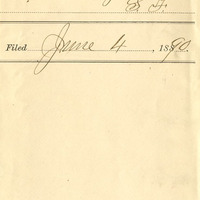 S. F.
Filed June 4, 1890.